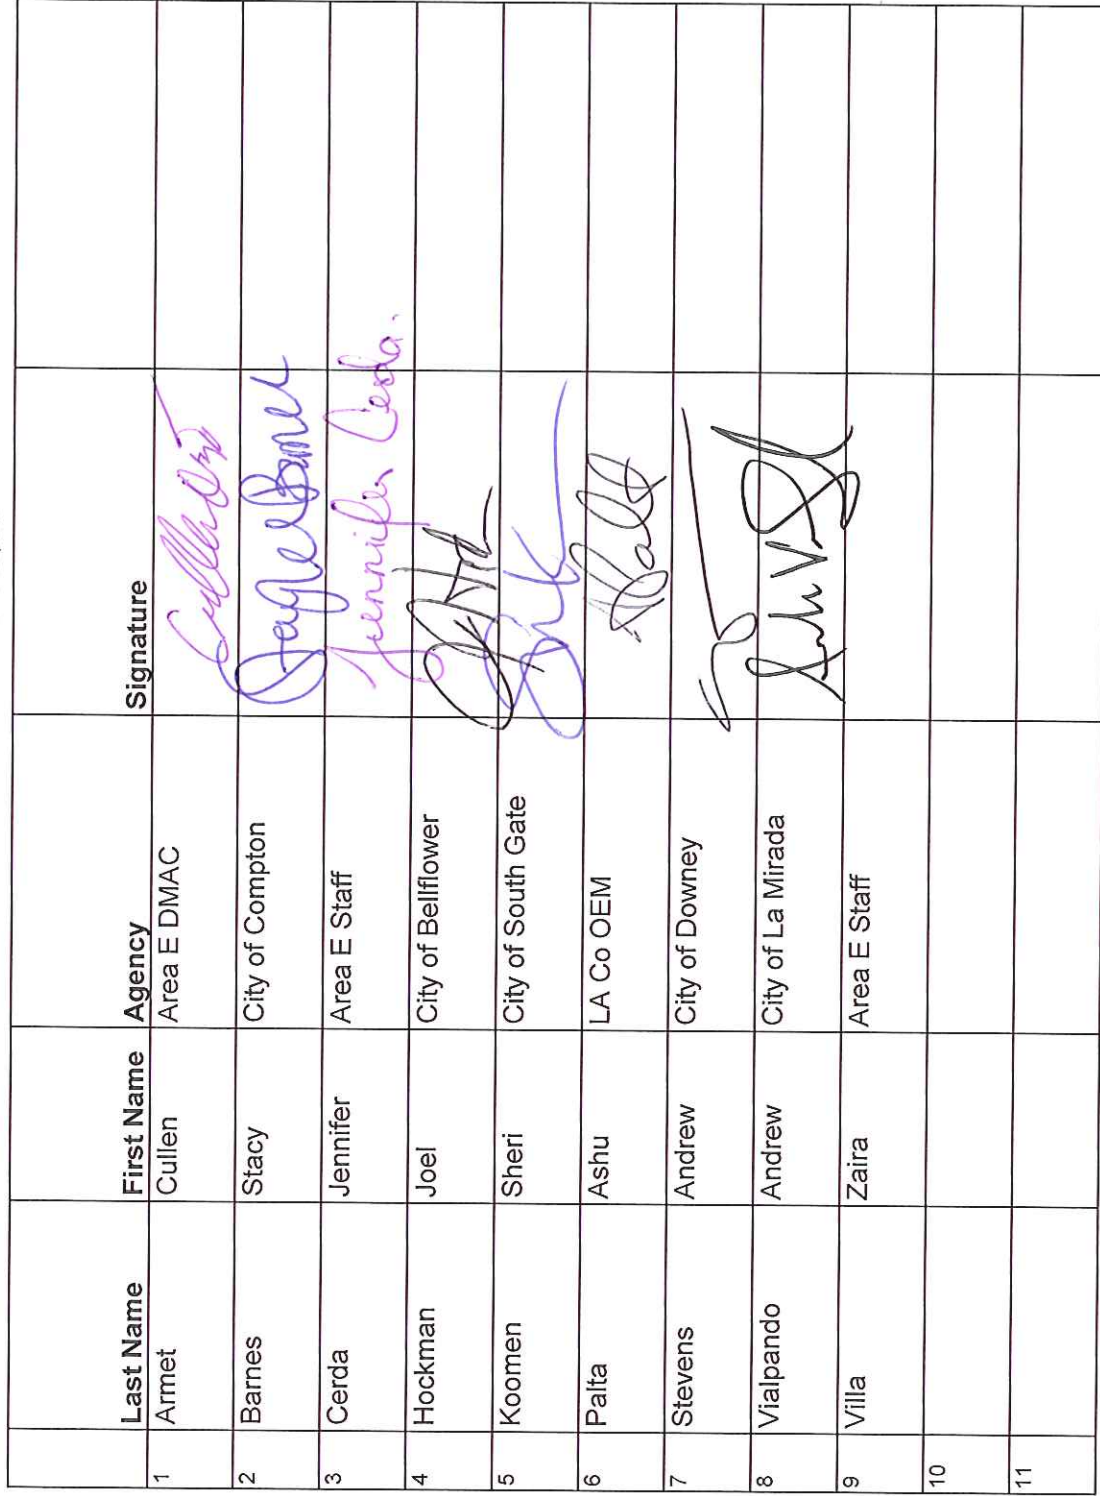 Last Name First Name Agency Signature
1 Armet Cullen Area E DMAC
2 Barnes Stacy City of Compton
3 Cerda Jennifer Area E Staff Jennifer Cerda.
4 Hockman Joel City of Bellflower
5 Koomen Sheri City of South Gate
6 Palta Ashu LA Co OEM
7 Stevens Andrew City of Downey
8 Vialpando Andrew City of La Mirada
9 Villa Zaira Area E Staff
10
11